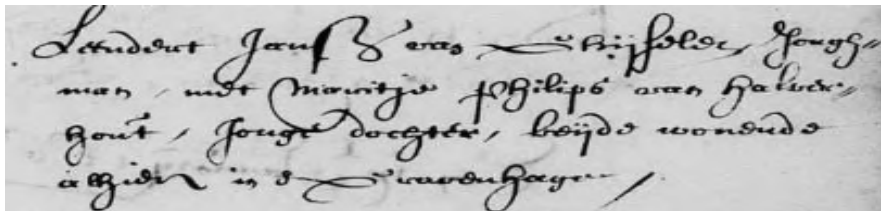 Leendert Jansz van Schijfeler, Jongh=
man, met Maritje Philips van Halver=
hout, Jonge dochter, beijde wonende
alhier in s Gravenhage /